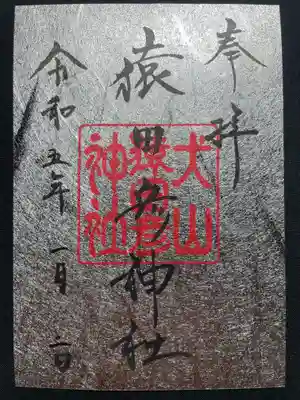 奉拝
猿田彦神社
犬山
猿田彦
神社
令和五年 一月 一日